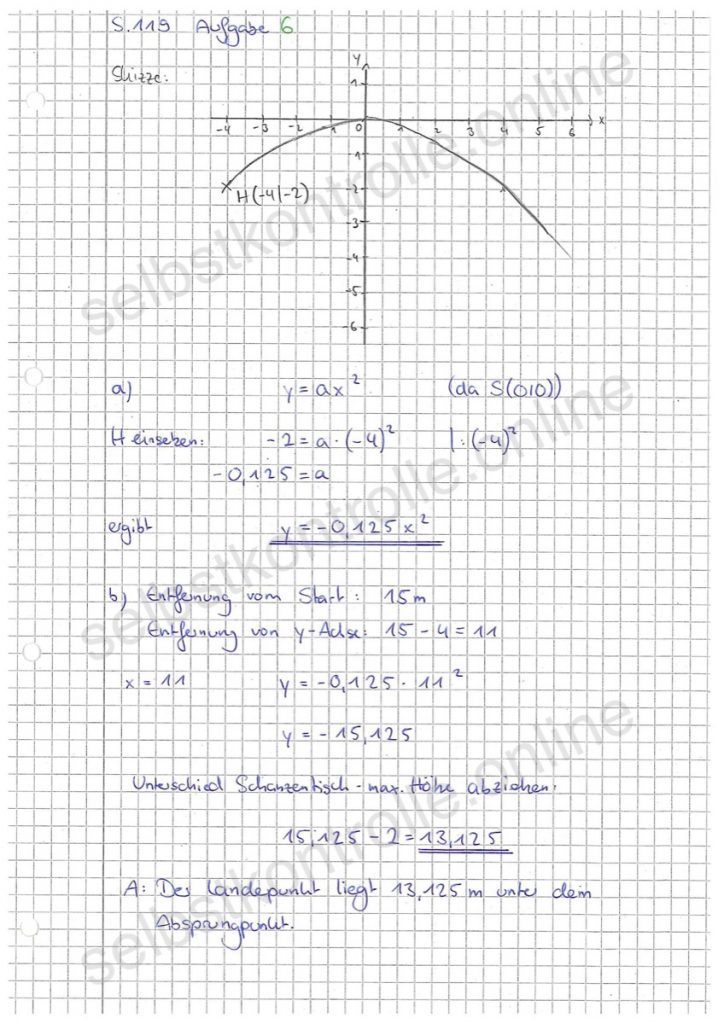 S.119 Aufgabe 6
Skizze:
y
1
-4 -3 -2 -1 0 1 2 3 4 5 6 x
-1
H(-4|-2)
-2
-3
-4
-5
-6
a) y = ax² (da S(0|0))
H einsetzen: -2 = a · (-4)² | : (-4)²
-0,125 = a
ergibt y = -0,125 x²
b) Entfernung vom Start: 15m
Entfernung von y-Achse: 15 - 4 = 11
x = 11 y = -0,125 · 11²
y = -15,125
Unterschied Schanzentisch - max. Höhe abziehen:
15,125 - 2 = 13,125
A: Der Landepunkt liegt 13,125 m unter dem
Absprungpunkt.
selbstkontrolle.online
selbstkontrolle.online
selbstkontrolle.online